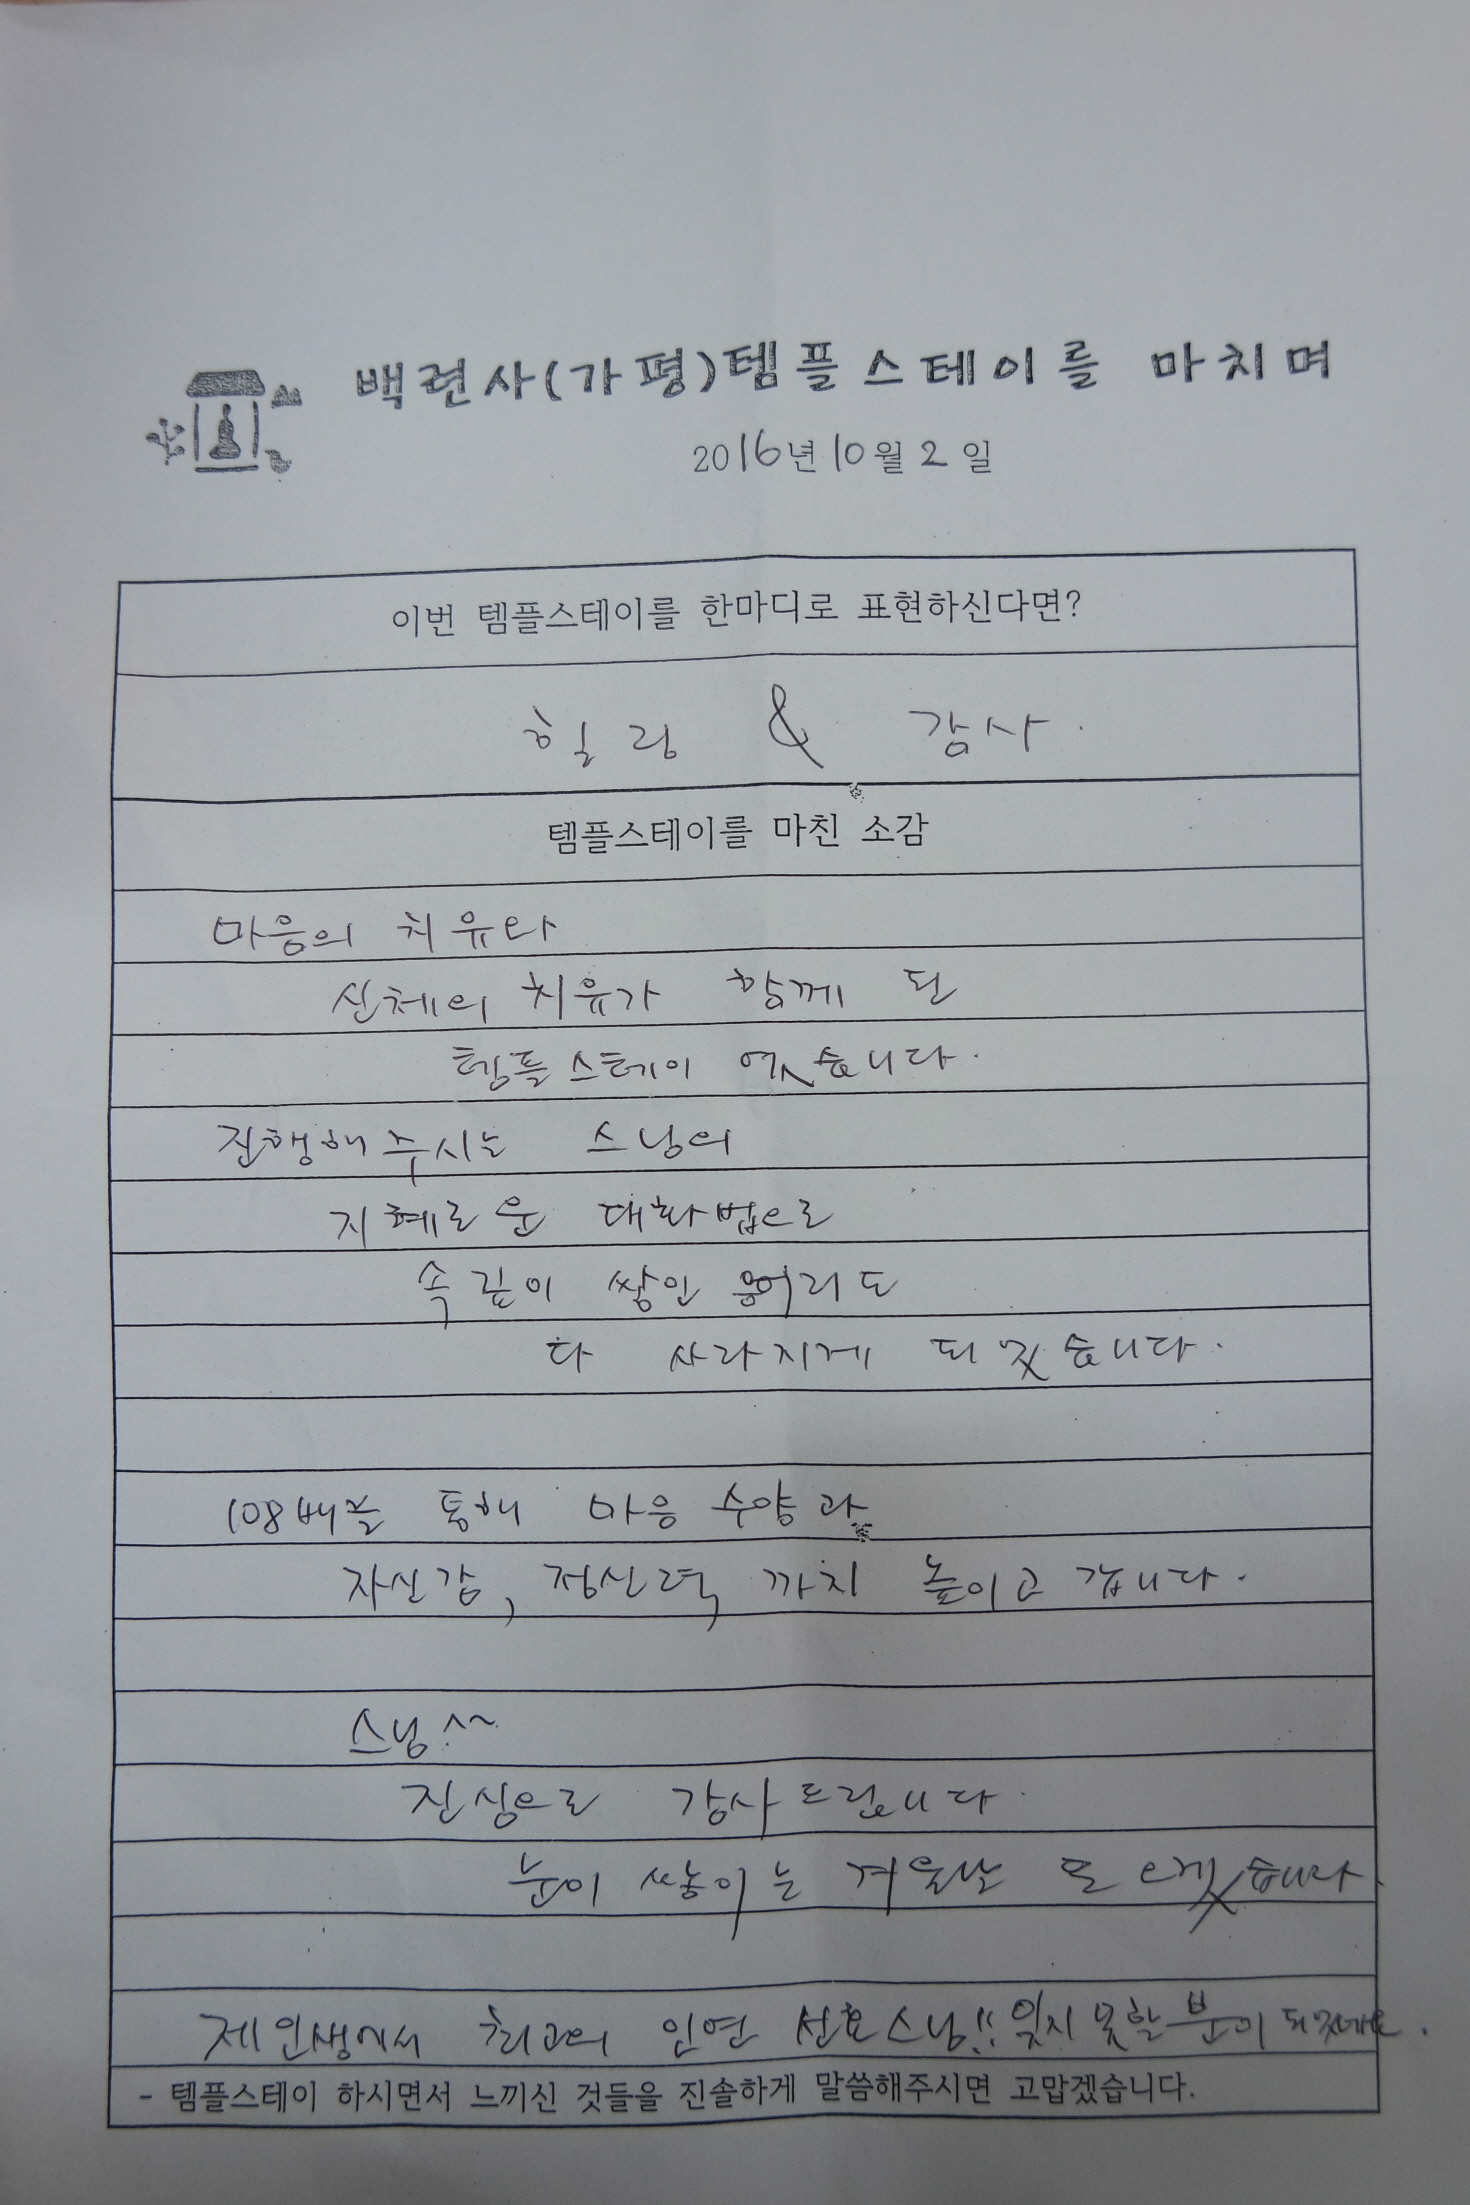 백련사(가평)템플스테이를 마치며
2016년 10월 2일
이번 템플스테이를 한마디로 표현하신다면?
힐링 & 감사.
템플스테이를 마친 소감
마음의 치유와
신체의 치유가 함께 된
템플스테이 였습니다.
진행해주시는 스님의
지혜로운 대화법으로
속 깊이 쌓인 응어리도
다 사라지게 되었습니다.
108배를 통해 마음 수양과
자신감, 정신력까지 높이고 갑니다.
스님^^~
진심으로 감사드립니다.
눈이 쌓이는 겨울날 또 오겠습니다.
제 인생에서 최고의 인연 선호스님!! 잊지 못할 분이 되었네요.
- 템플스테이 하시면서 느끼신 것들을 진솔하게 말씀해주시면 고맙겠습니다.